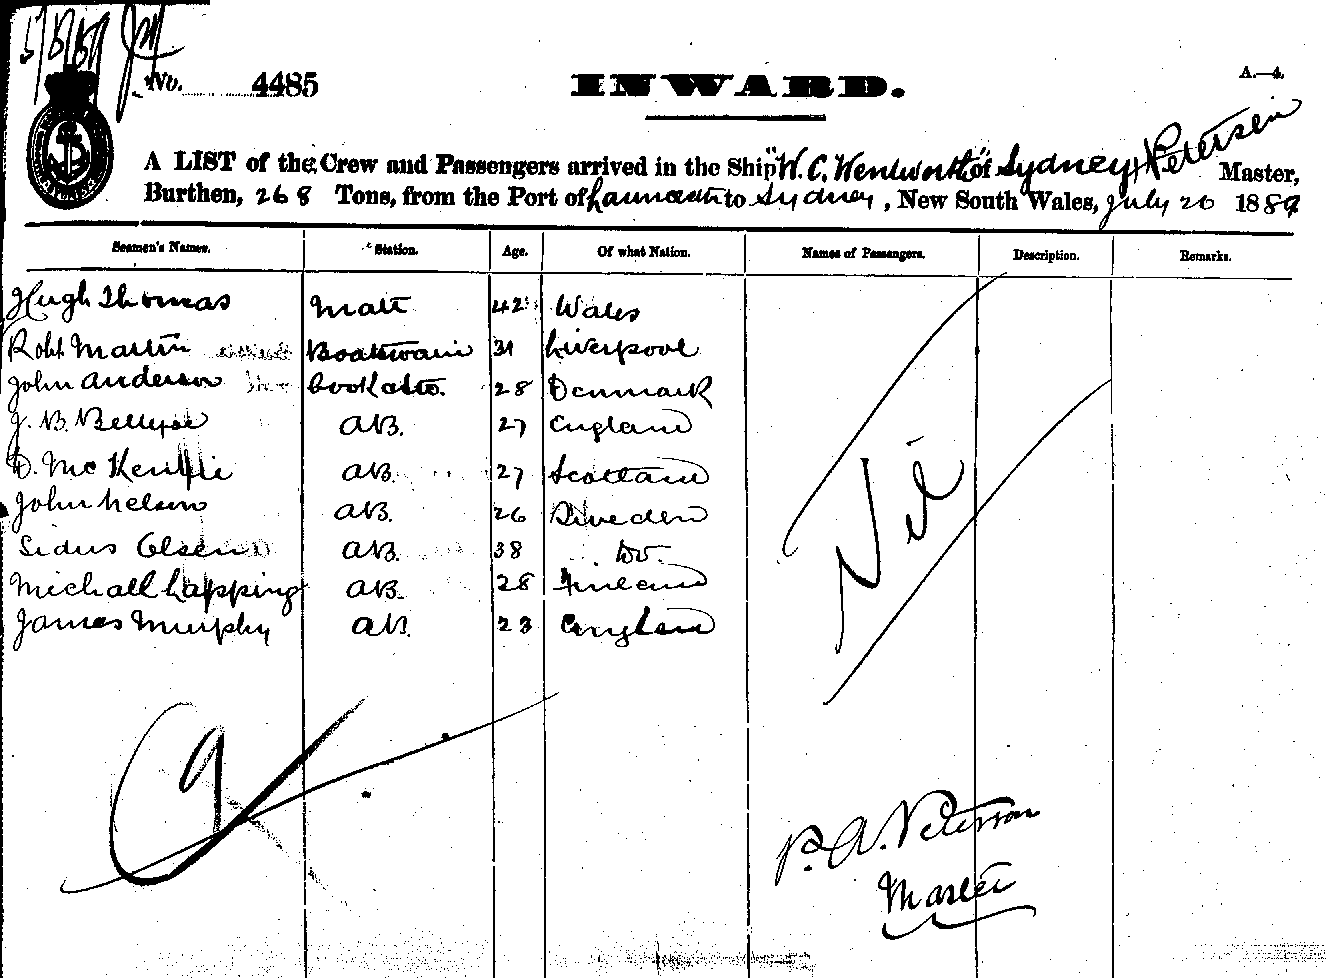 5/8/89
No. 4485
INWARD.
A.—4.
A LIST of the Crew and Passengers arrived in the Ship "W. C. Wentworth" of Sydney, Petersen Master,
Burthen, 268 Tons, from the Port of to Sydney, New South Wales, July 20 1889
Seamen's Names. Station. Age. Of what Nation. Names of Passengers. Description. Remarks.
Hugh Thomas Mate 42 Wales
Robt Martin Boatswain 31 Liverpool
John Anderson Cook 28 Denmark
J. B. AB. 27 England
D. McKenzie AB. 27 Scotland
John Nelson AB. 26 Sweden
Sidus Olsen AB. 38 Do.
Michall Lapping AB. 28 Finland
James Murphy AB. 23 England
Nil
9
P. A. Peterson
Master